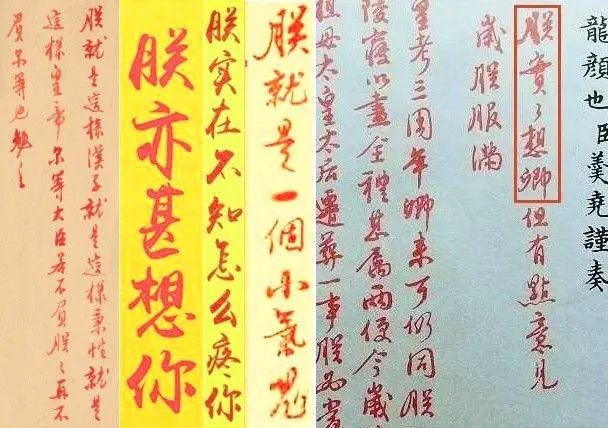 龍顏也臣羹堯謹奏
朕實々想卿但有點意見
歲朕服滿
皇考三周年卿來可仍同朕
陵舊以盡全禮甚屬兩便今歲
祖母太皇太后遷葬一事朕
朕就是一個小氣鬼
朕实在不知怎么疼你
朕亦甚想你
朕就是這樣漢子就是這樣秉性就是
這樣皇帝尔等大臣若不負朕朕再不
負尔等也勉之